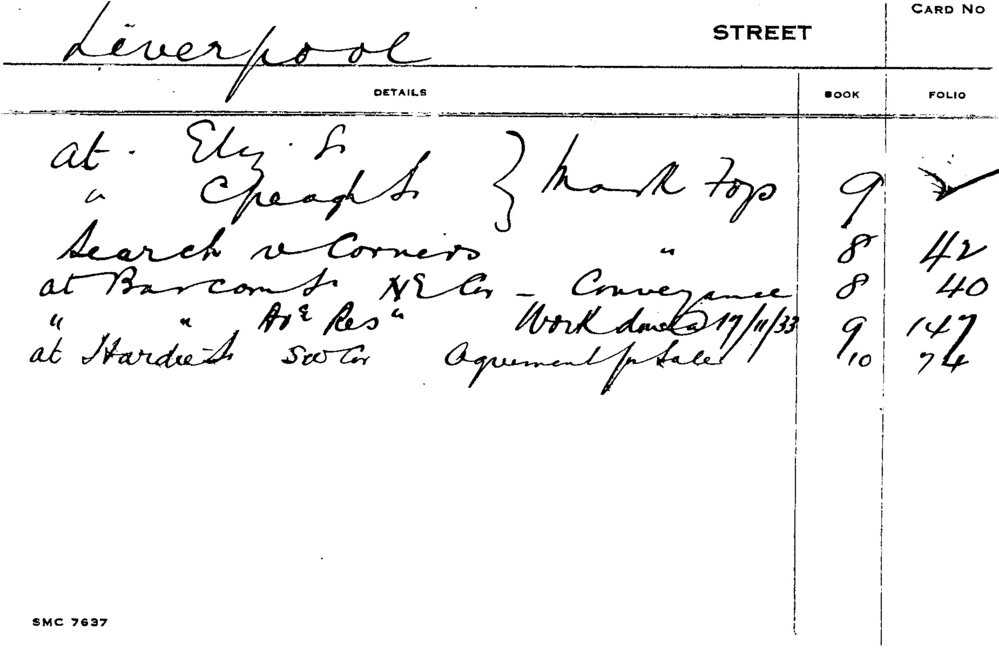 Liverpool STREET CARD NO
DETAILS BOOK FOLIO
at Eliz. St
" Cpeagh St } Mark Fop 9
Search v Corners " 8 42
at Barcom St NE Cor - Conveyance 8 40
" " Av E Res " Work done 17/11/33 9 147
at Hardie St SW Cor Agreement for Sale 10 74
SMC 7637